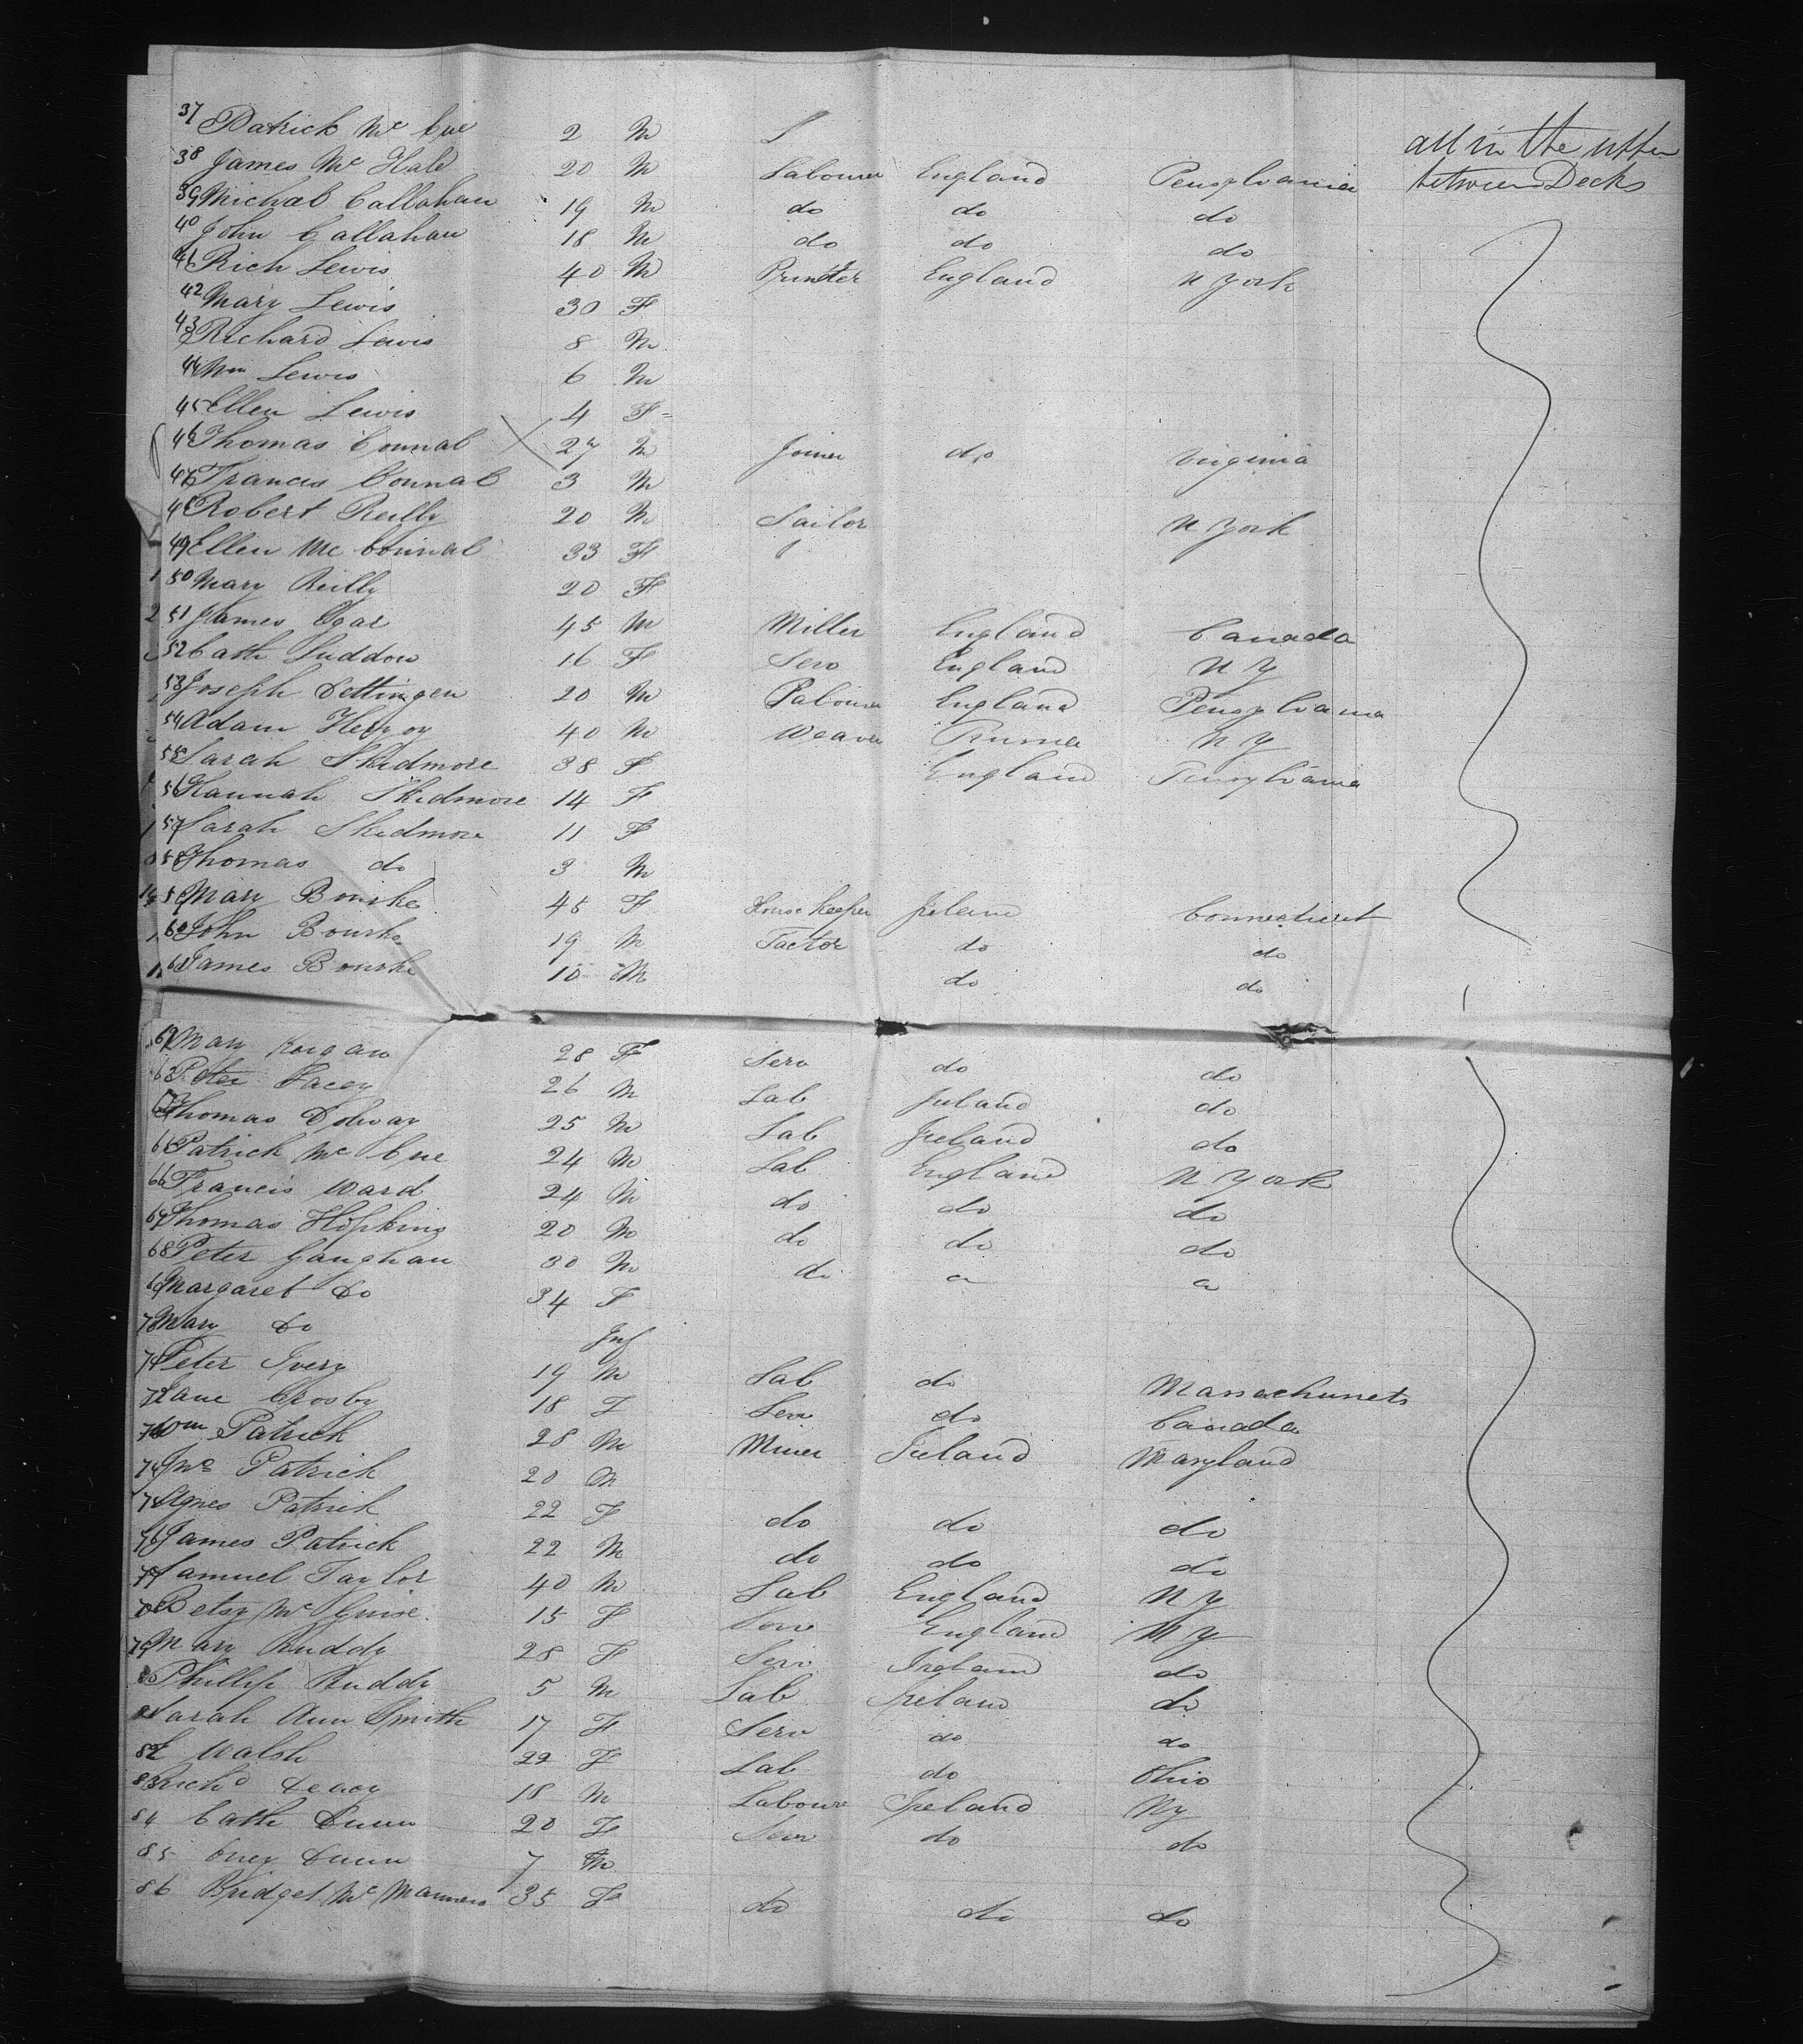 37 Patrick Mc Cue 2 M all in the upper
38 James Mc Hale 20 M Labourer England Pensylvania between Decks
39 Michael Callahan 19 M do do do
40 John Callahan 18 M do do do
41 Rich Lewis 40 M Printer England N York
42 Mary Lewis 30 F
43 Richard Lewis 8 M
44 Wm Lewis 6 M
45 Ellen Lewis 4 F
46 Thomas Connal 27 M Joiner do Virginia
47 Francis Connal 3 M
48 Robert Reilly 20 M Sailor N York
49 Ellen Mc Connal 33 F
50 Mary Reilly 20 F
51 James 45 M Miller England Canada
52 Cath Luddon 16 F Serv England N Y
53 Joseph Dettingen 20 M Labourer England Pensylvania
54 Adam 40 M Weaver N Y
55 Sarah Skidmore 38 F England Pensylvania
56 Hannah Skidmore 14 F
57 Sarah Skidmore 11 F
58 Thomas do 3 M
59 Mary Bourke 45 F House Keeper Ireland Connecticut
60 John Bourke 19 M Factor do do
61 James Bourke 10 M do do
62 Mary 28 F Serv do do
63 Peter Lacey 26 M Lab Ireland do
64 Thomas 25 M Lab Ireland do
65 Patrick Mc Cue 24 M Lab England N York
66 Francis Ward 24 M do do do
67 Thomas Hopkins 20 M do do do
68 Peter Gaughan 30 M do
69 Margaret Do 34 F
70 Mary Do Inf
71 Peter Ivery 19 M Lab do Massachusets
72 Jane Crosby 18 F Serv do Canada
73 Wm Patrick 28 M Miner Ireland Maryland
74 Jno Patrick 20 M
75 Agnes Patrick 22 F do do do
76 James Patrick 22 M do do do
77 Samuel Taylor 40 M Lab England N Y
78 Betsy McGuire 15 F England N Y
79 Mary Ruddy 28 F Serv Ireland do
80 Phillip Ruddy 5 M Lab Ireland do
81 Sarah Ann Smith 17 F Serv do do
82 Walsh 22 F Lab do Ohio
83 Richd 18 M Labourer Ireland Ny
84 Cath Dunn 20 F Serv do do
85 Dunn 7 M
86 Bridget Mc Manners 35 F do do do